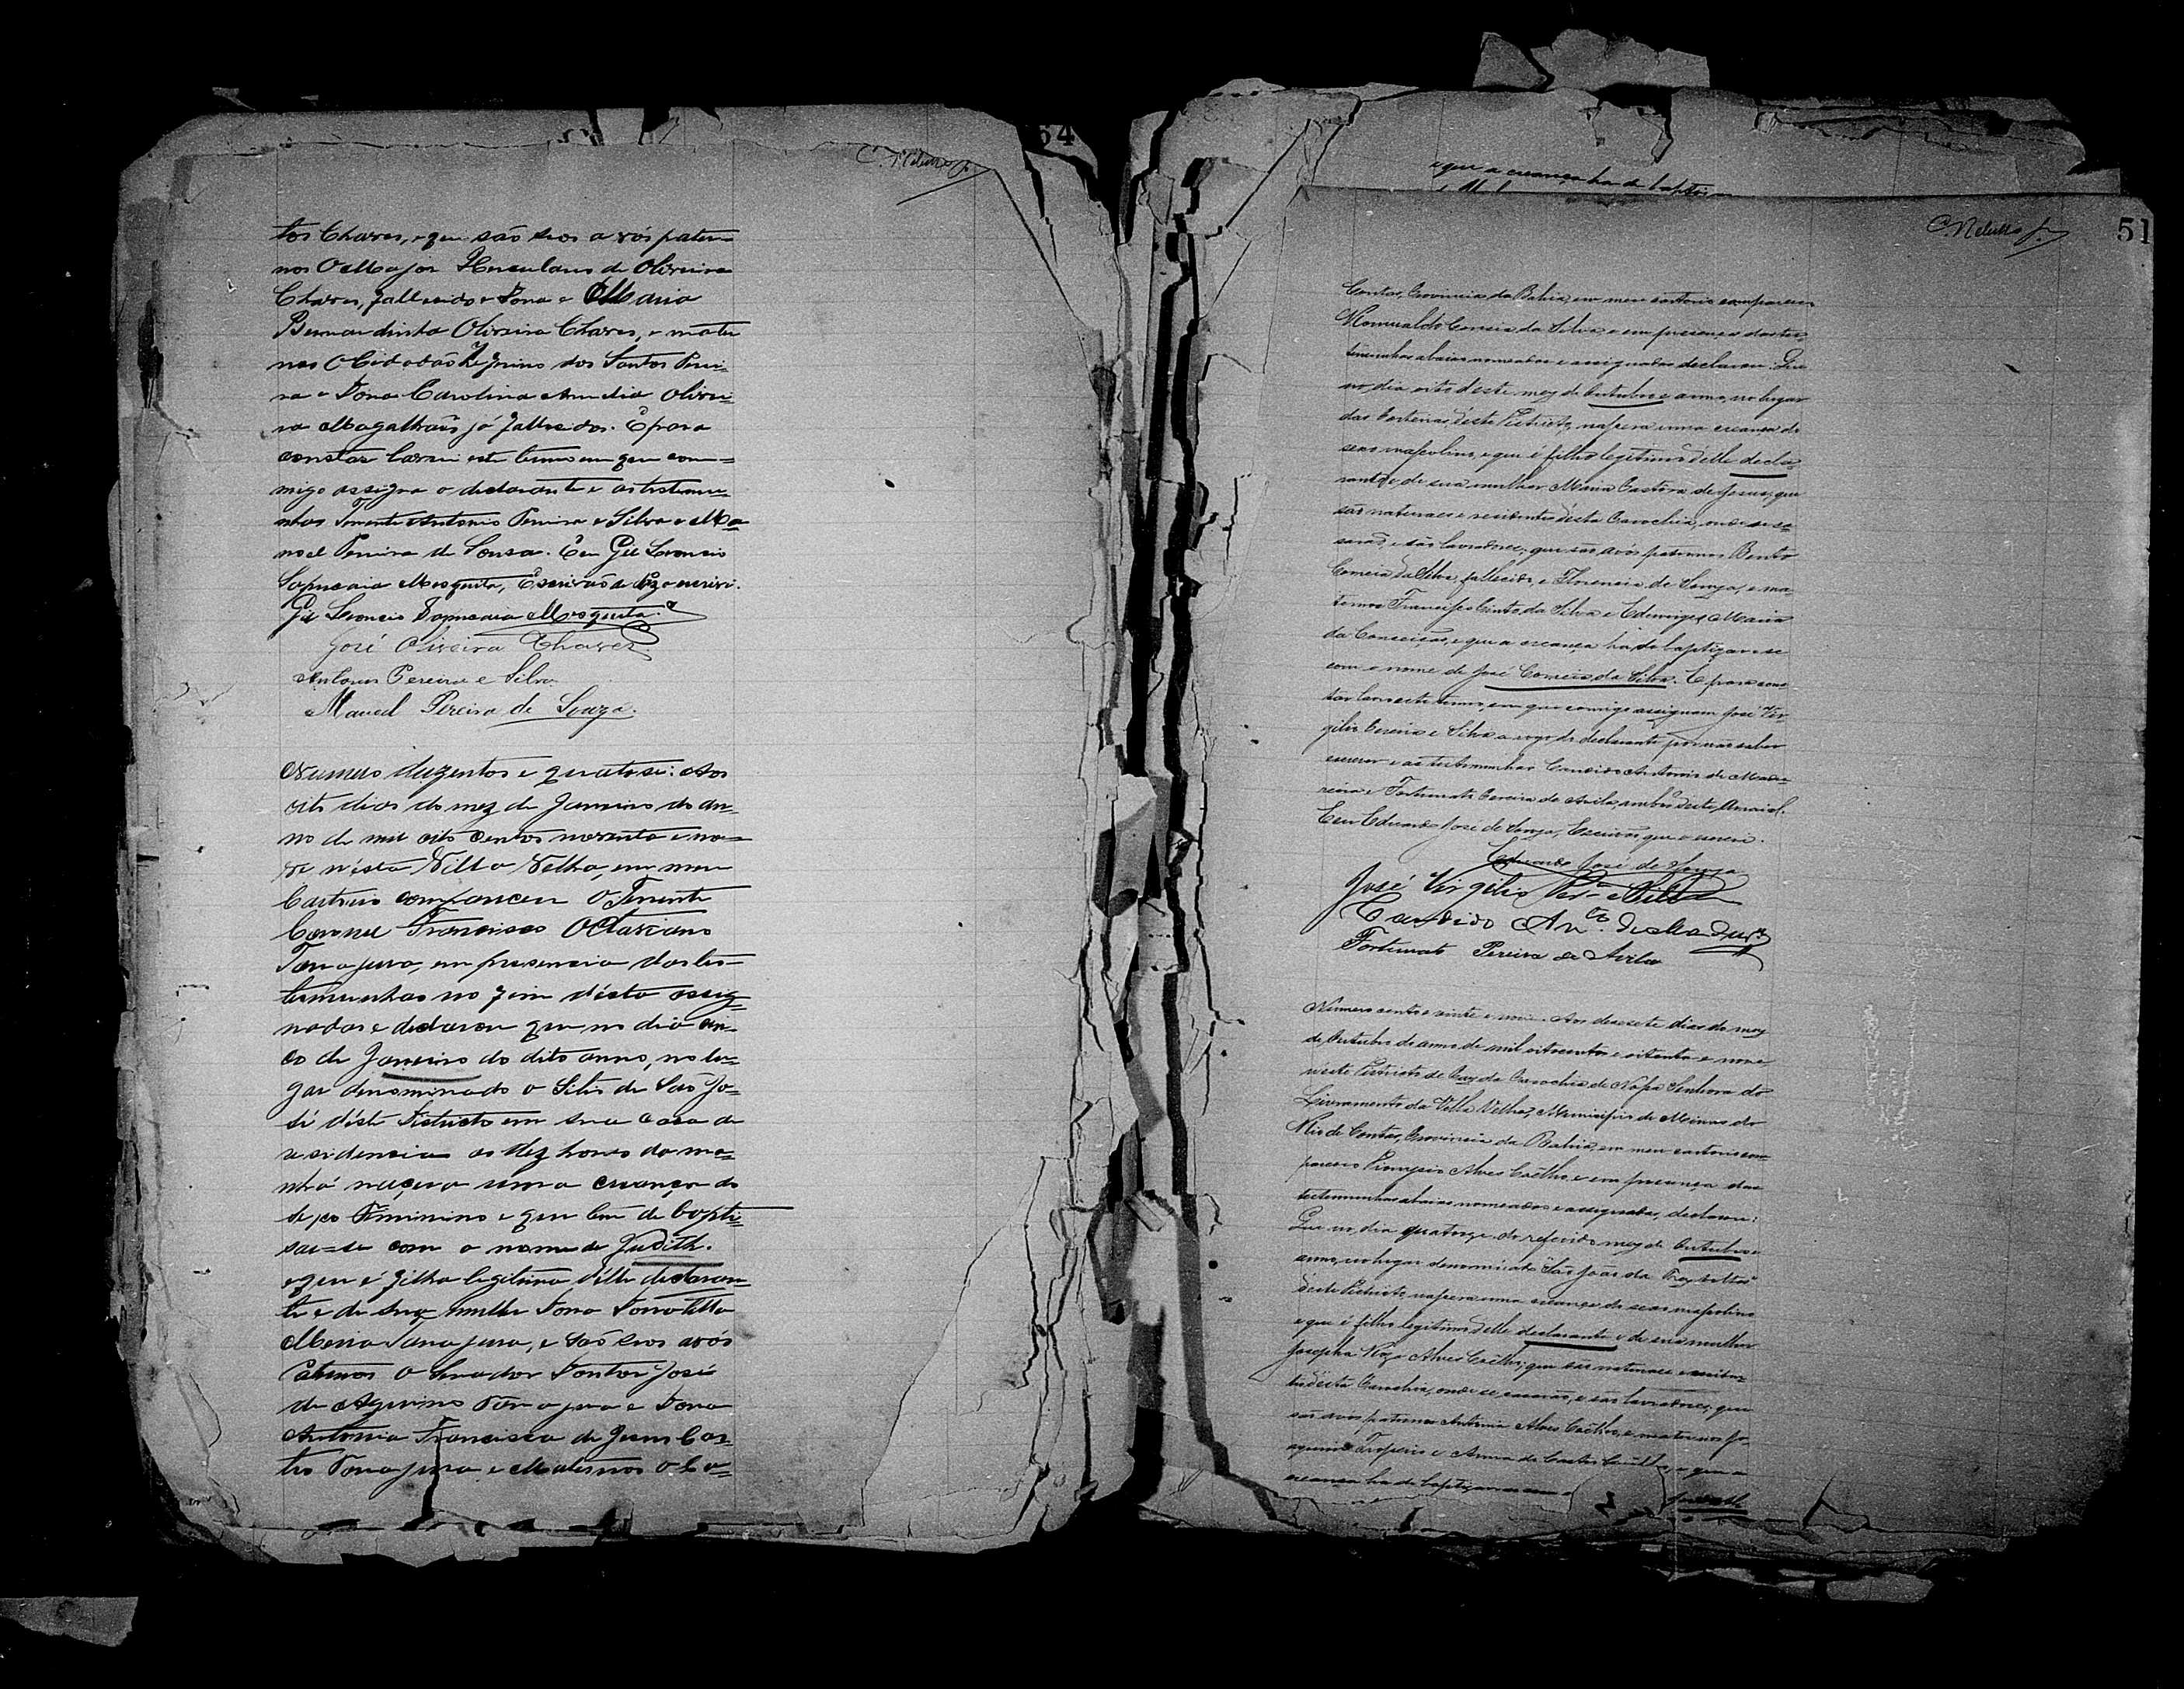 64
C. N. 
tos Chaves, e que são seos avós pater-
nos O Major Herculano de Oliveira
Chaves, fallecido e Dona Maria
Bernardinha Oliveira Chaves, e mater
nos O Cidadão Zeferino dos Santos Perei-
ra e Dona Carolina Amelia Olivei-
ra Magalhães já fallecidos. E para
constar lavrei este termo em que com=
migo assigna o declarante e as testemu-
nhas Tenente Antonio Pereira e Silva e Ma-
noel Pereira de Sousa. Eu Gil Leoncio
Sapucaia Mesquita, Escrivão de Paz o escrevi.
Gil Leoncio Sapucaia Mesquita
José Oliveira Chaves
Antonio Pereira e Silva
Manoel Pereira de Souza.
Numero duzentos e quatorze: Aos
oito dias do mez de Janeiro do an-
no de mil oito centos noventa e no=
ve nésta Villa Velha, em meu
Cartorio compareceu O Tenente
Coronel Francisco Octaviano
Tanajura, em presencia das tes-
temunhas no fim désta assig-
nadas e declarou que no dia cin-
co de Janeiro do dito anno, no lu-
gar denominado o Sitio de São Jo-
sé déste Districto em sua casa de
residencia as dez horas da ma-
nhã nasceu uma creança do
sexo Feminino e que tem de bapti-
sar=se com o nome de Judith.
e que é filha legitima délle declaran-
te e de sua mulher Dona
Maria Tanajura, e são seos avós
Paternos O Senador Doutor José
de Aquino Tanajura e Dona
Antonia Francisca de Jesus Cas-
tro Tanajura e Maternos O Ca-
e que a creança ha de baptisar
C. N. 
51
Contas, Provincia da Bahia, em meu cartorio compareceu
Romualdo Correia da Silva, e em presença das tes-
temunhas abaixo nomeadas e assignadas declarou: Que
no dia oito d'este mez de Outubro e anno, no lugar
das Porteiras, d'este Districto, nasceu uma creança do
sexo masculino, e que é filho legitimo d'elle decla-
rante, e de sua mulher Maria Castora de Jesus, que
são naturaes e residentes d'esta Parochia, onde se ca-
sarão, e são lavradores, que são avós paternos Bento
Correia da Silva, fallecido, e Florencia de Souza, e ma-
ternos Francisco Pinto da Silva e Edwirges Maria
da Conceição, e que a creança ha de baptizar-se
com o nome de José Correia da Silva. E para cons-
tar lavro este termo, em que comigo assignam José Vir-
gilio Pereira e Silva a rogo do declarante por não saber
escrever e as testemunhas Candido Antonio de Madu-
reira e Fortunato Pereira de Avila, ambos d'este Arraial.
Eu Eduardo José de Souza, Escrivão que o escrevi.
Eduardo José de Souza
José Virgilio Per.ª e Silva
Candido An.to de Madur.ª
Fortunato Pereira de Avila
Número cento e vinte e nove. Aos desesete dias do mez
de Outubro do anno de mil oitocentos e oitenta e nove
n'este Districto de Paz da Parochia de Nossa Senhora do
Livramento da Villa Velha, Municipio de Minas do
Rio de Contas, Provincia da Bahia, em meu cartorio com-
pareceu Alves Coêlho, e em presença das
testemunhas abaixo nomeadas e assignadas, declarou:
Que no dia quatorze do referido mez de Outubro e
anno, no lugar denominado "São João da
d'este Districto, nasceu uma creança do sexo masculino
e que é filho legitimo d'elle declarante e de sua mulher
Josepha Alves Coêlho; que são naturaes e residen-
tes d'esta Parochia, onde se casarão, e são lavradores, que
são avós paternos Antonio Alves Coêlho, e maternos Jo-
aquim e Anna de Castro e que a
creança ha de baptizar-se com o